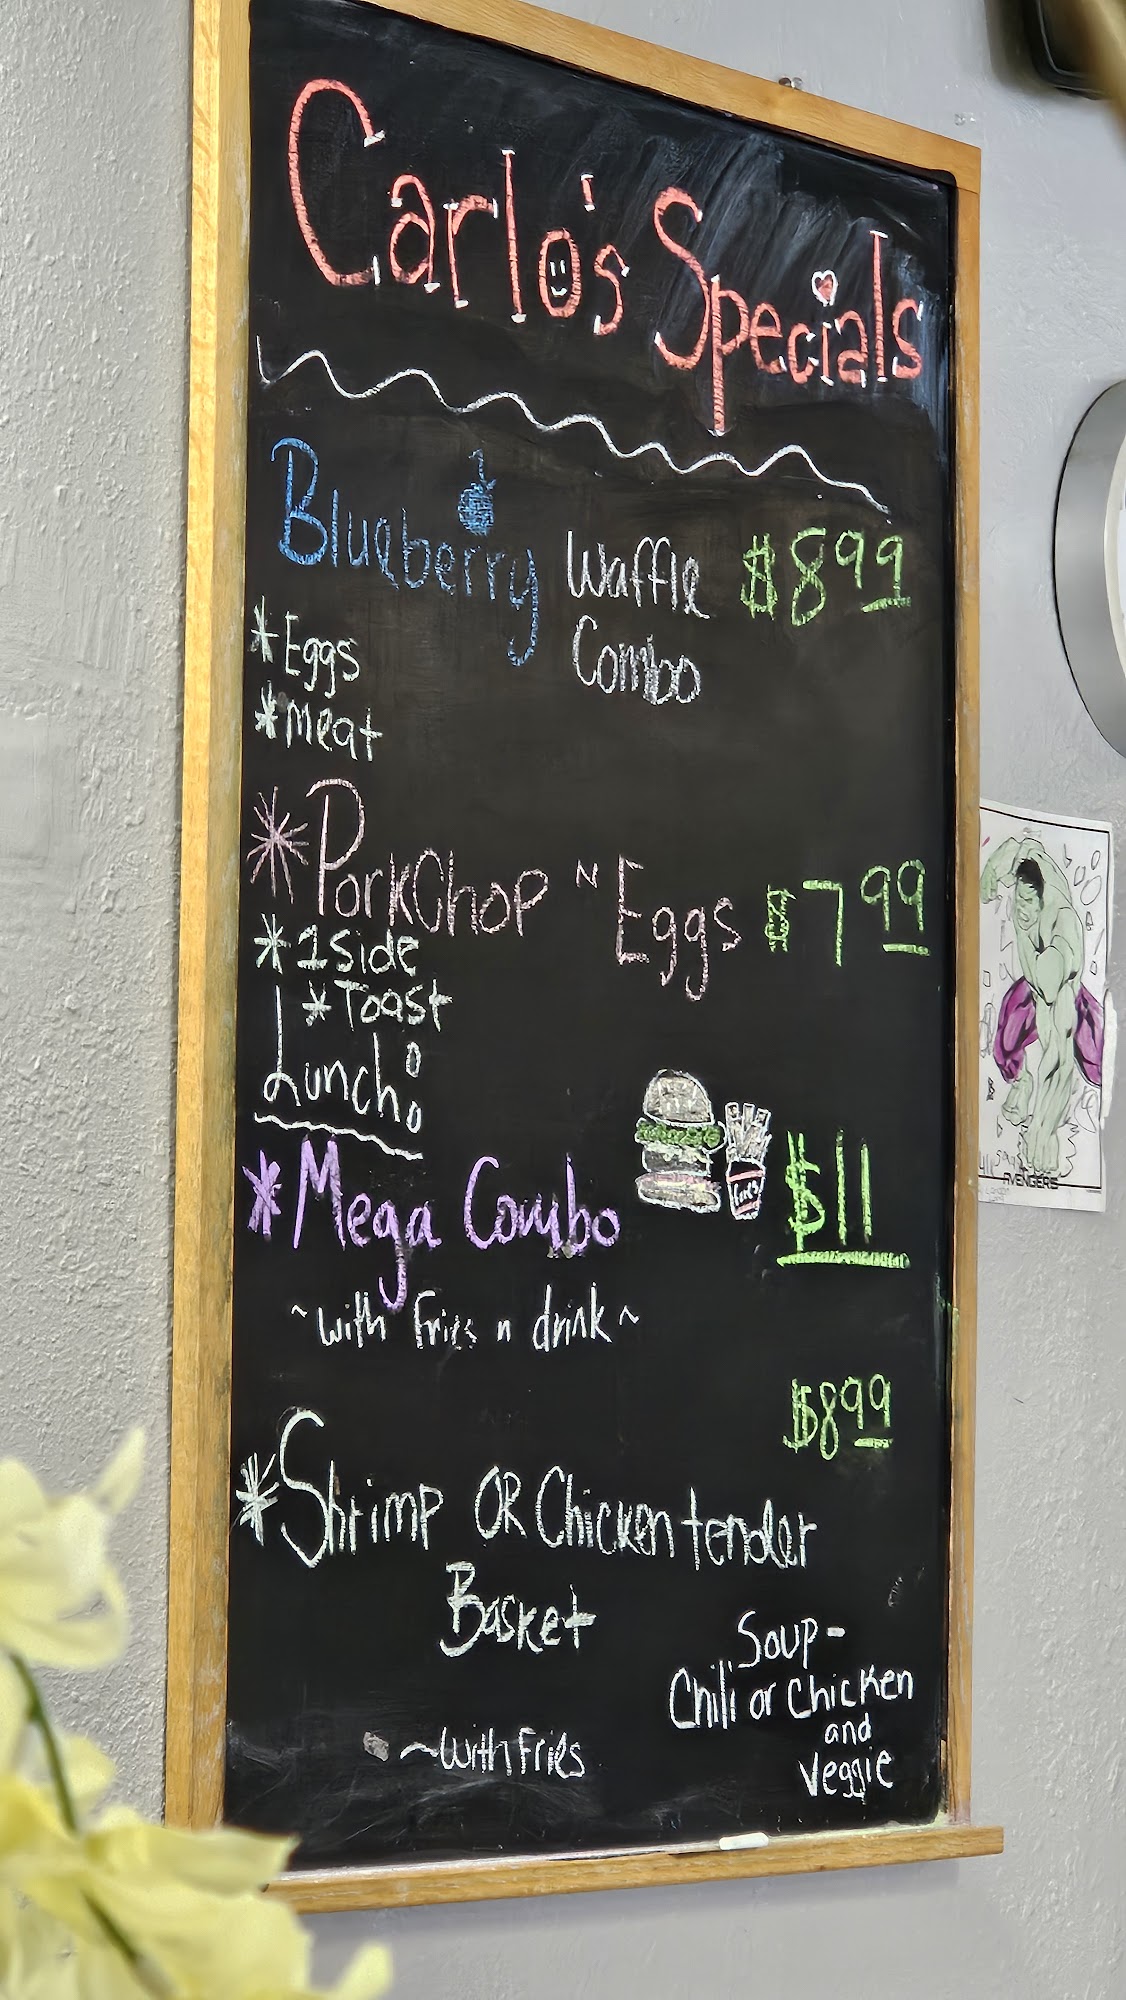 Carlo's Specials
Blueberry Waffle $8.99
Combo
*Eggs
*Meat
*PorkChop "N Eggs $7.99
*1side
*Toast
Lunch:
*Mega Combo $11
~with fries n drink~
fries
$8.99
*Shrimp OR Chicken tender
Basket
~With Fries
Soup-
Chili or Chicken
and
Veggie
AVENGERS